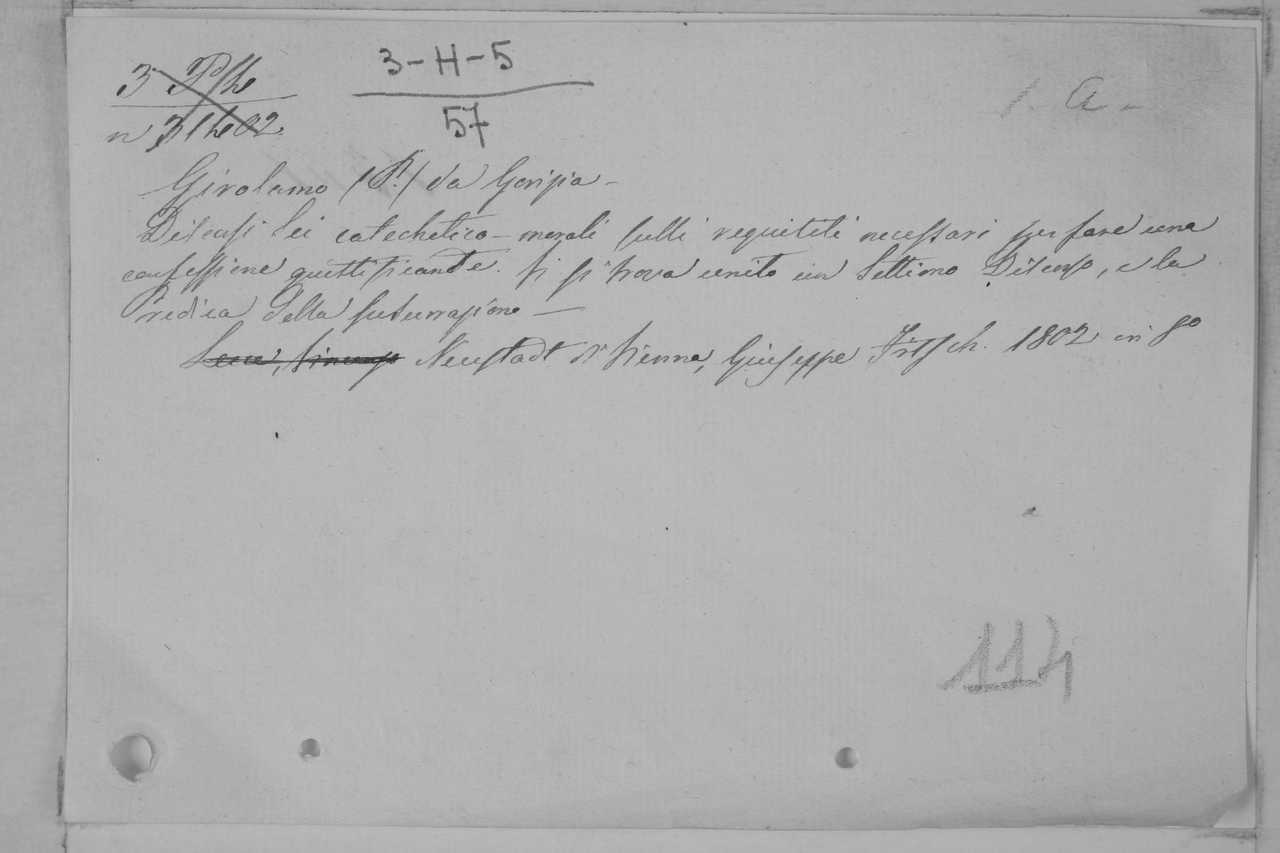 3-H-5
57
n 31402
Girolamo (P.) da Gorizia -
Discorsi sei catechetico-morali sulli requisiti necessari per fare una
confessione giustificante. Vi si trova unito un Settimo Discorso, e la
Predica della
Neustadt di Vienna, Giuseppe Fritsch. 1802 in 8o
114